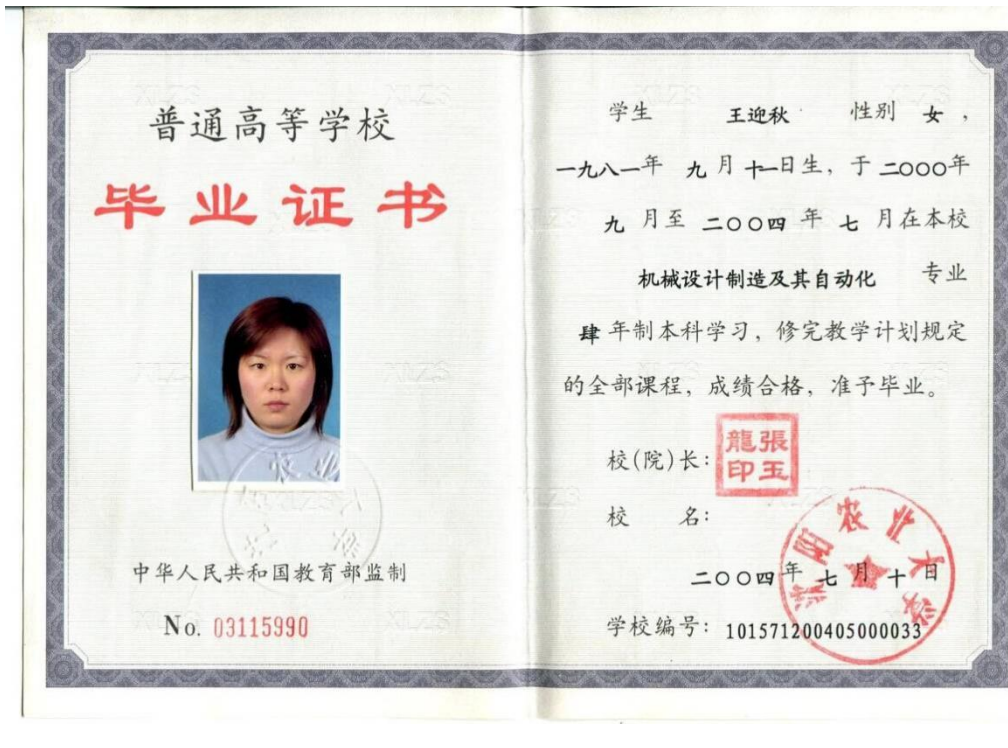 普通高等学校
毕业证书
农业大学
中华人民共和国教育部监制
No. 03115990
学生 王迎秋 性别 女，
一九八一年 九月十一日生，于二○○○年
九 月至 二○○四 年 七 月在本校
机械设计制造及其自动化 专业
肆 年制本科学习，修完教学计划规定
的全部课程，成绩合格，准予毕业。
校(院)长：
張玉龍印
校 名：
沈阳农业大学
二○○四年 七 月 十 日
学校编号：101571200405000033